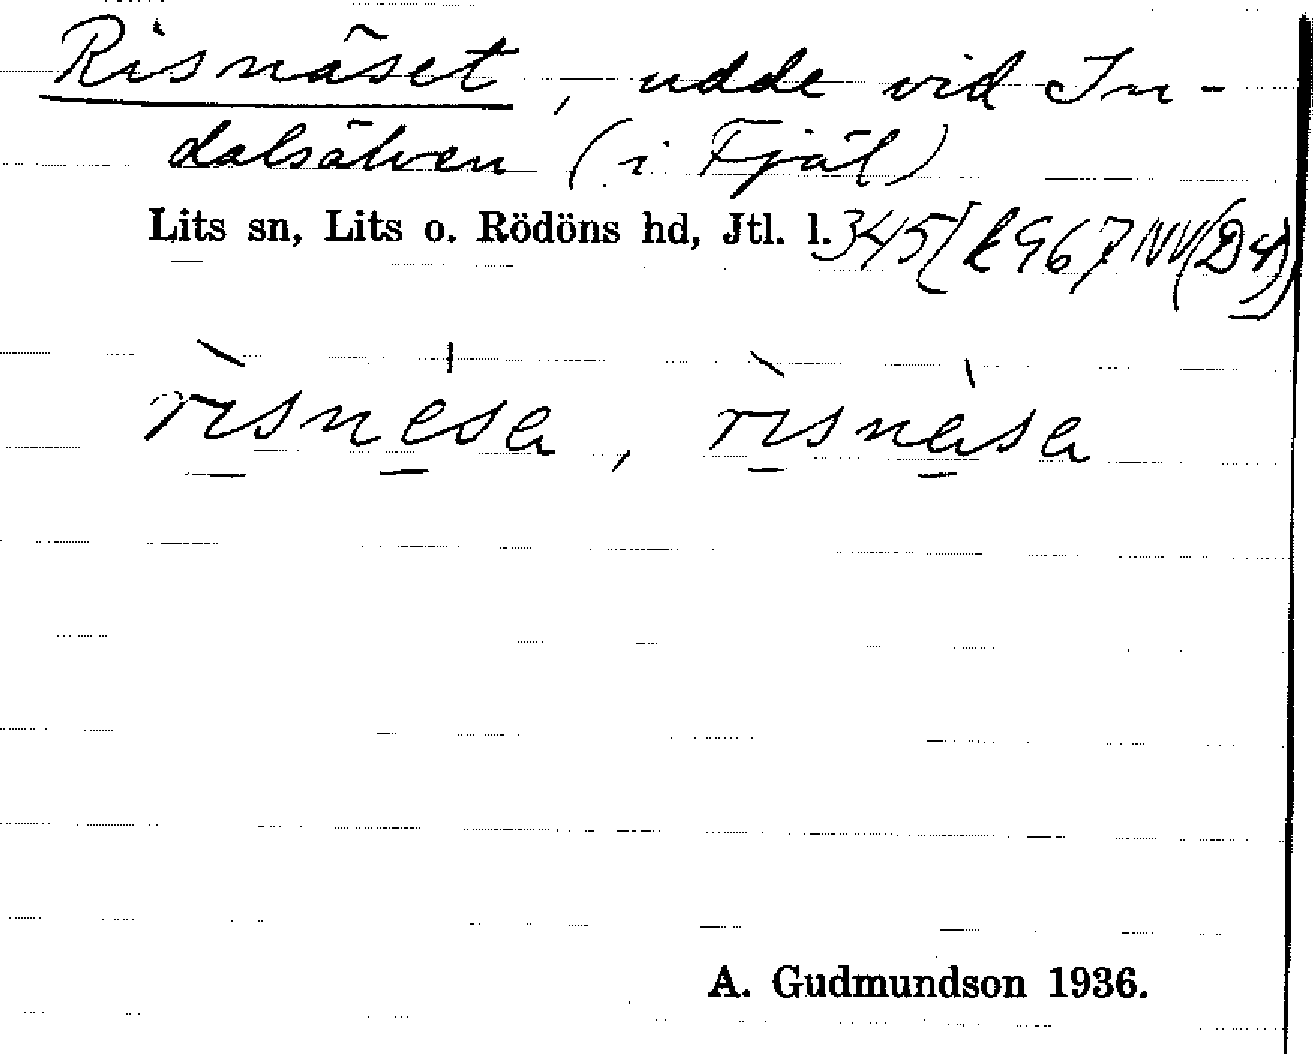 Risnäset, udde vid In-
dalsälven (i Fjäl)
Lits sn, Lits o. Rödöns hd, Jtl. l. 345 [k 967 NV(D4)]
rìsnesa, rìsnàsa
A. Gudmundson 1936.